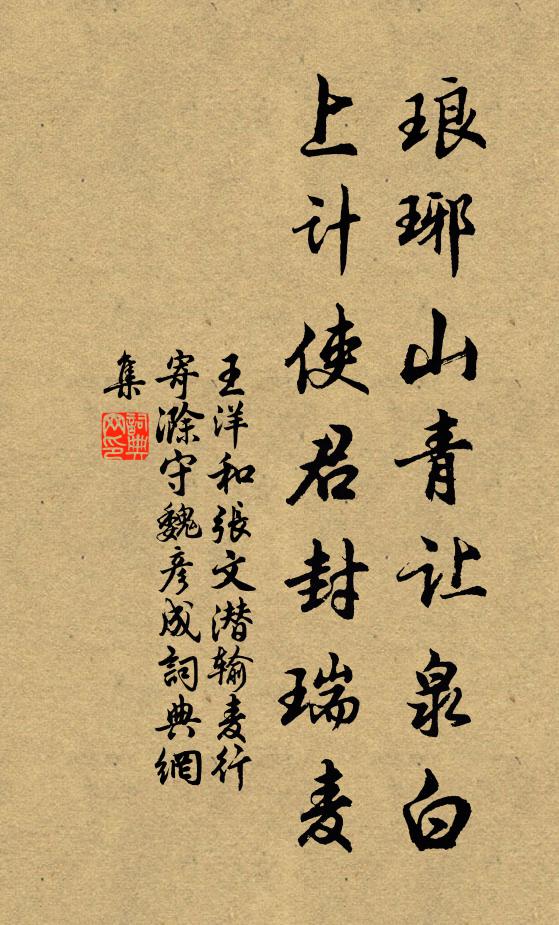 琅琊山青让泉白
上计使君封瑞麦
王洋和張文潜输麦行
寄滁守魏彦成詞典網
集
詞典網印